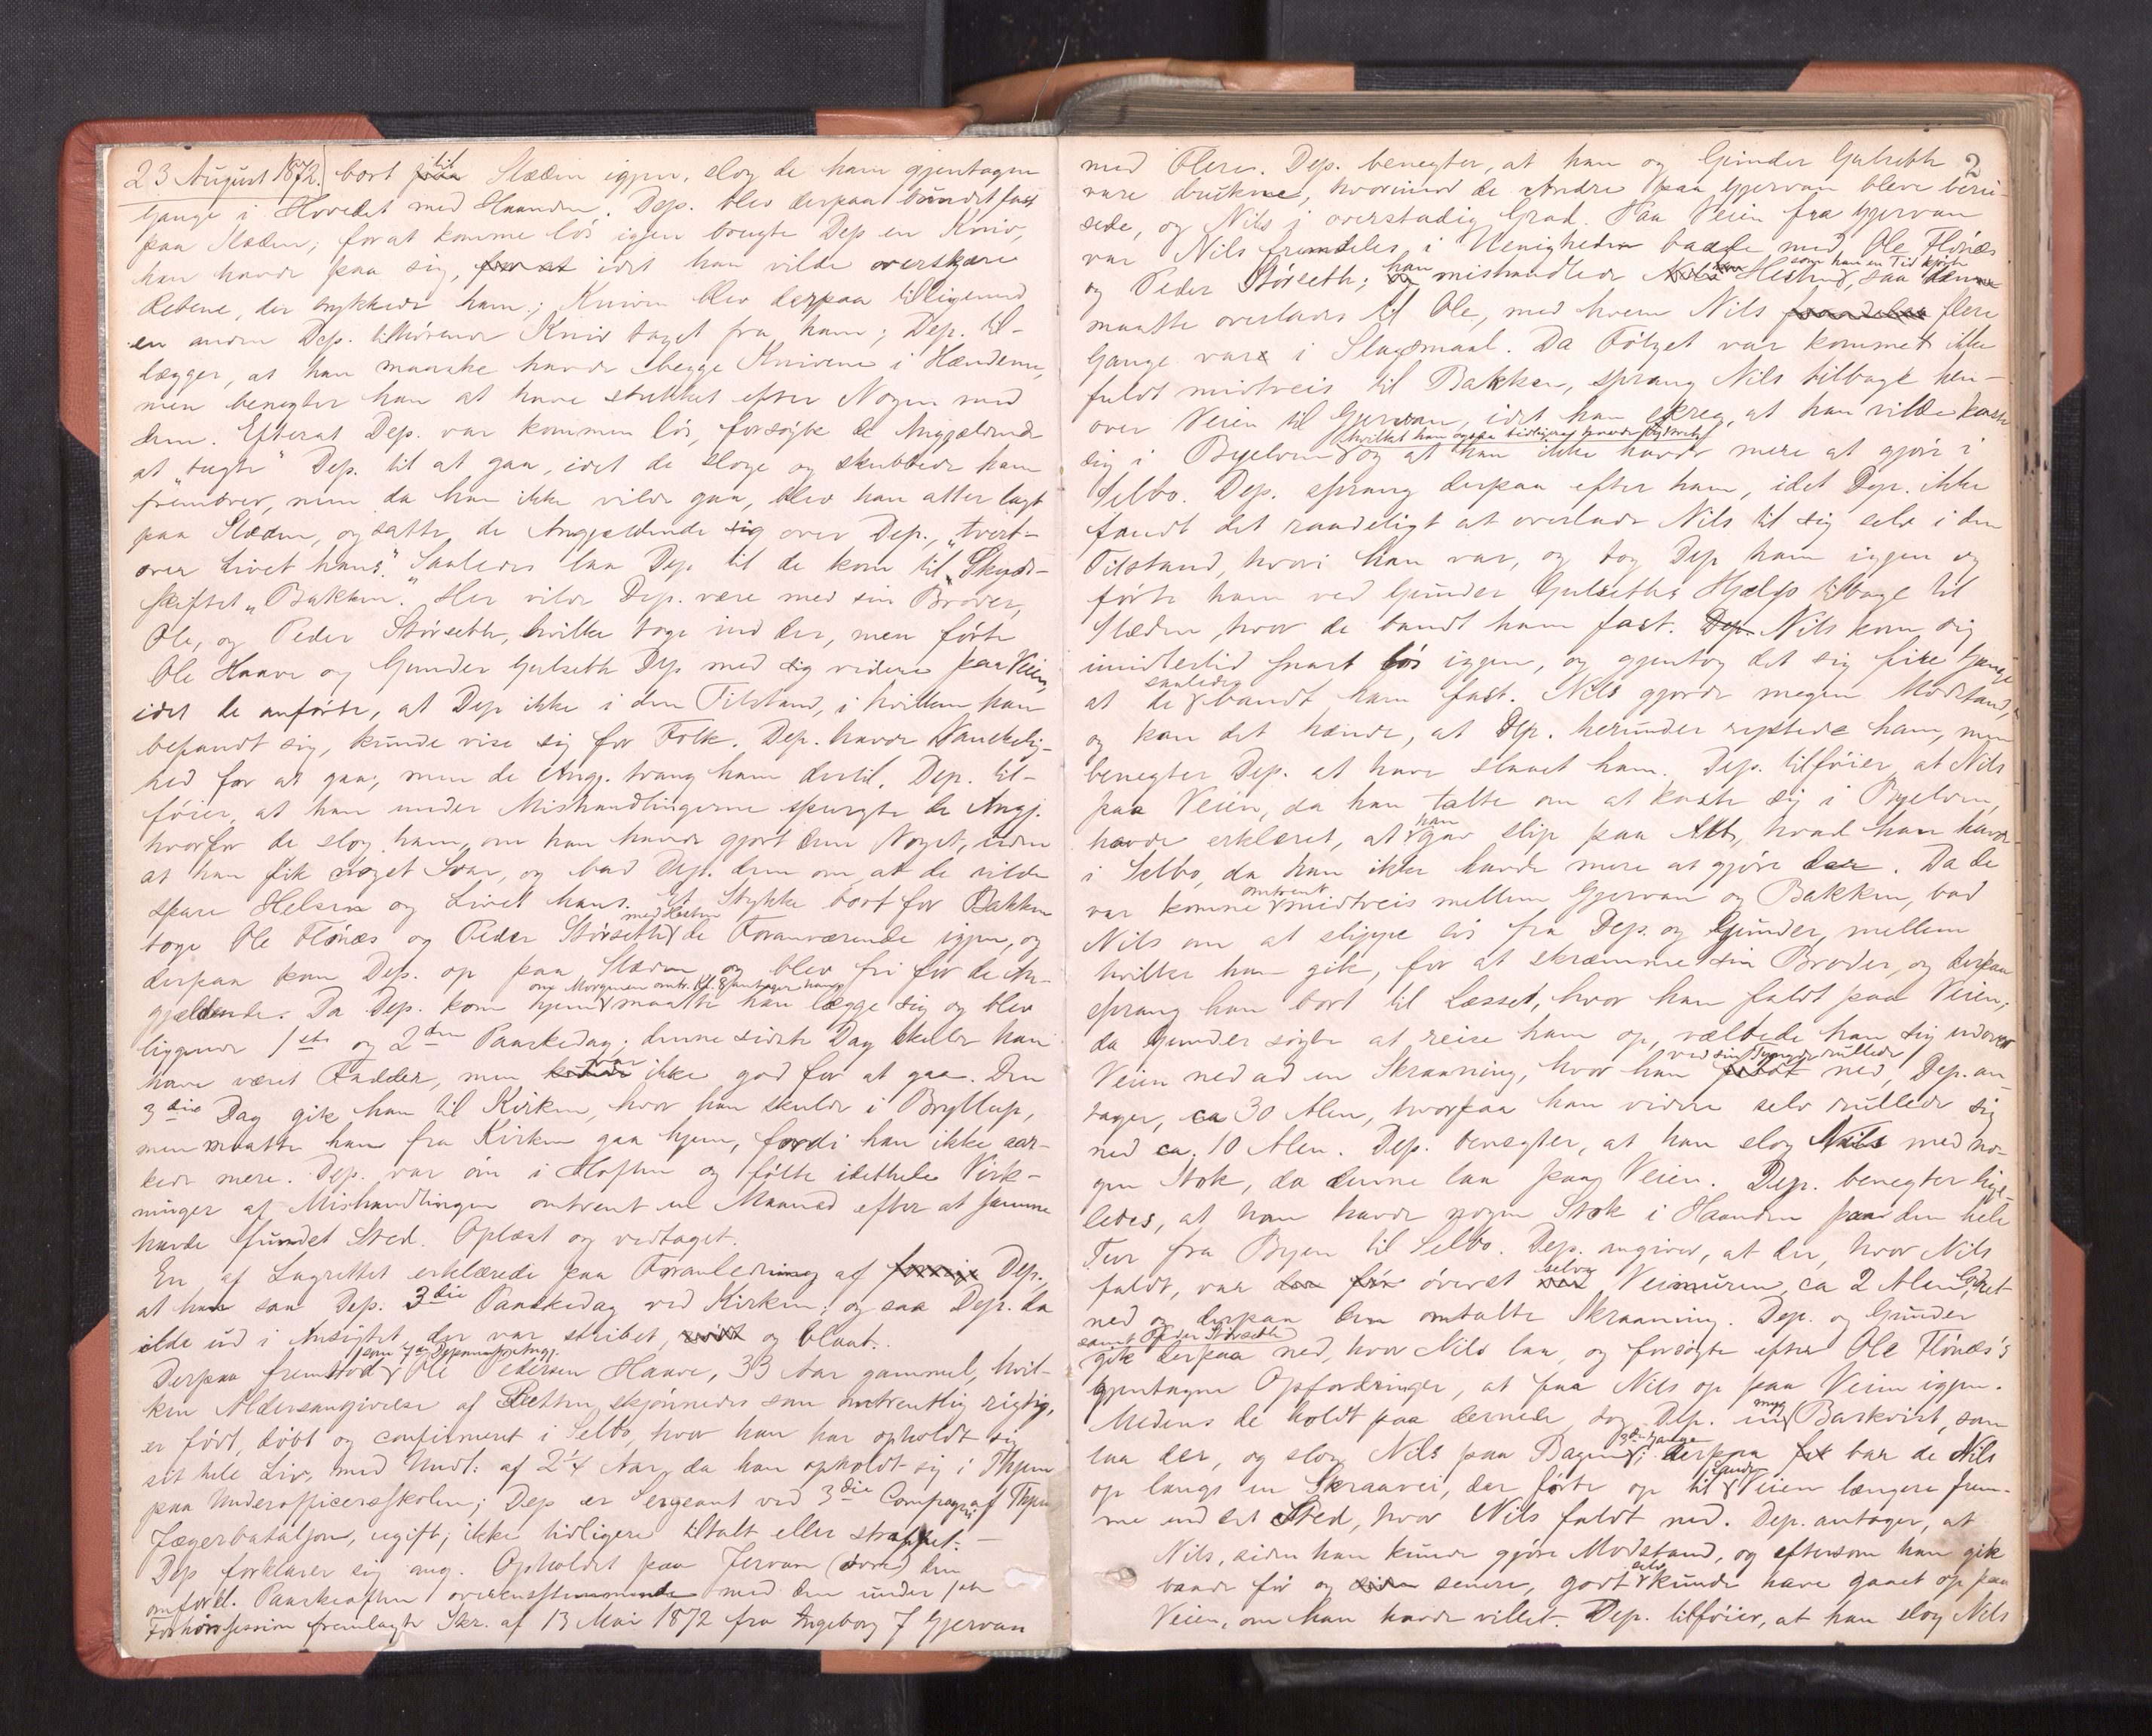 23 August 1872. bort til Slæden igjen, slog de ham gjentagne
Gange i Hovedet med Haanden. Dep. blev derpaa bundet fast
paa Slæden; forat komme lös igjen brugte Dep en Kniv,
han havde paa sig, for at idet han vilde overskjære
Rebene, der trykkede ham; Kniven blev derpaa tilligemed
en anden Dep. tilhörende Kniv taget fra ham; Dep. til-
lægger, at han maaske havde begge Knivene i Hænderne,
men benegter han at have stukket efter Nogen med
dem. Efterat Dep. var kommen lös, forsögte de Angjældende
at "tugte" Dep. til at gaa, idet de sloge og skubbede ham
fremover, men da han ikke vilde gaa, blev han atter lagt
paa Slæden, og satte de Angjældende sig over Dep., "tvert-
over Livet hans". Saaledes laa Dep til de kom til Skyds-
skiftet "Bakken". Her vilde Dep. være med sin Broder,
Ole, og Peder Störseth, hvilke toge ind der, men förte
Ole Haave og Gunder Gulseth Dep med sig videre paa Veien,
idet de anförte, at Dep ikke i den Tilstand, i hvilken han
befandt sig, kunde vise sig for Folk. Dep. havde Vanskelig-
hed for at gaa; men de Angj. tvang ham dertil. Dep. til-
föier, at han under Mishandlingerne spurgte de Angj.
hvorfor de slog ham, om han havde gjort dem Noget, uden
at han fik noget Svar, og bad Dep. dem om, at de vilde
spare Helsen og Livet hans. Et Stykke bort for Bakken
med Hesten
toge Ole Flönæs og Peder Störseth de Foranværende igjen, og
derpaa kom Dep. op paa Slæden og blev fri for de An-
om Morgenen omtr. Kl. 8 antager han
gjældende. Da Dep. kom hjem maatte han lægge sig og blev
liggende 1ste og 2den Paaskedag; denne sidste Dag skulde han
have været Fadder, men kunde var ikke god for at gaa. Den
3die Dag gik han til Kirken, hvor han skulde i Bryllup,
men maatte han fra Kirken gaa hjem, fordi han ikke aar-
kede mere. Dep. var öm i Hoften og fölte idethele Virk-
ninger af Mishandlingen omtrent en Maaned efter at samme
havde fundet Sted. Oplæst og vedtaget.
En af Lagrettet erklærede paa Foranledning af Dep.,
at han saa Dep. 3die Paaskedag ved Kirken; og saa Dep. da
ilde ud i Ansigtet, der var stribet, og blaat.
som 7de Deponent Angj.
Derpaa fremstod Ole Pedersen Haave, 33 Aar gammel, hvil-
ken Aldersangivelse af Retten skjönnedes som omtrentlig rigtig,
er födt, döbt og confirmeret i Selbo, hvor han har opholdt sig
sit hele Liv, med Undt: af 2 1/4 Aar, da han opholdt sig i Thjem
paa Underofficersskolen; Dep er Sergeant ved 3die Compagni af Thjem
Jægerbataljon, ugift; ikke tidligere tiltalt eller straffet. –
Dep forklarer sig ang. Opholdet paa Jervan (overs) den
omford. Paaskeaften overensstemmende med den under 1ste
Forhörssession fremlagte Skr. af 13 Mai 1872 fra Ingeborg J Gjervan
2
med Flere. Dep. benegter, at han og Gunder Gulseth
vare drukne, hvorimod de Andre paa Gjervan bleve beru-
sede, og Nils i overstadig Grad. Paa Veien fra Gjervan
var Nils fremdeles i Uenigheden baade med Ole Flönæs
som han en Tid kjörte
og Peder Störseth; han mishandlede Nils Hesten, saa denne
maatte overlades til Ole, med hvem Nils flere
Gange var i Slagsmaal. Da Fölget var kommet ikke
fuldt midtveis til Bakken, sprang Nils tilbage hen-
over Veien til Gjervan, idet han skreg, at han vilde kaste
hvilket han ogsaa tidligere havde ytret
sig i Byelven og at han ikke havde mere at gjöre i
Selbo. Dep. sprang derpaa efter ham, idet Dep. ikke
fandt det raadeligt at overlade Nils til sig selv i den
Tilstand, hvori han var, og tog Dep ham igjen og
förte ham ved Gunder Gulseths Hjælp tilbage til
Slæden, hvor de bandt ham fast. Dep. Nils kom sig
imidlertid snart lös igjen, og gjentog det sig fire Gange
at de saaledes bandt ham fast. Nils gjorde megen Modstand,
og kan det hænde, at Dep. herunder rystede ham, men
benegter Dep. at have slaaet ham. Dep. tilföier, at Nils
paa Veien, da han talte om at kaste sig i Byelven,
havde erklæret, at han gav slip paa Alt, hvad han havde
i Selbo, da han ikke havde mere at gjöre der. Da de
var komne omtrent midtveis mellem Gjervan og Bakken, bad
Nils om at slippe lös fra Dep. og Gunder, mellem
hvilke han gik, for at skræmme sin Broder, og derpaa
sprang han bort til Læsset, hvor han faldt paa Veien;
da Gunder sögte at reise ham op, væltede han sig udover
ved sin Tyngde rullede
Veien ned ad en Skraaning, hvor han faldt ned, Dep. an-
tager, ca 30 Alen, hvorpaa han videre selv rullede sig
ned ca. 10 Alen. Dep. benegter, at han slog Nils med no-
gen Stok, da denne laa paa Veien. Dep. benegter lige-
ledes, at han havde nogen Stok i Haanden paa den hele
Tur fra Byen til Selbo. Dep. angiver, at der, hvor Nils
faldt, var överst selve Veimuren, ca 2 Alen lodret
ned og derpaa den omtalte Skraaning. Dep. og Gunder
samt Peder Störseth
gik derpaa ned, hvor Nils laa, og forsögte efter Ole Flönæs's
gjentagne Opfordringer, at faa Nils op paa Veien igjen.
Medens de holdt paa dernede tog Dep. en myg Barkvist, som
laa der, og slog Nils paa Bagen 3de Gange; derpaa bar de Nils
op langs en Skraavei, der förte op til Landeveien længere frem-
me end det Sted, hvor Nils faldt ned. Dep. antager, at
Nils, siden han kunde gjöre Modstand, og eftersom han gik
baade för og senere, godt selv kunde have gaaet op paa
Veien, om han havde villet. Dep. tilföier, at han slog Nils